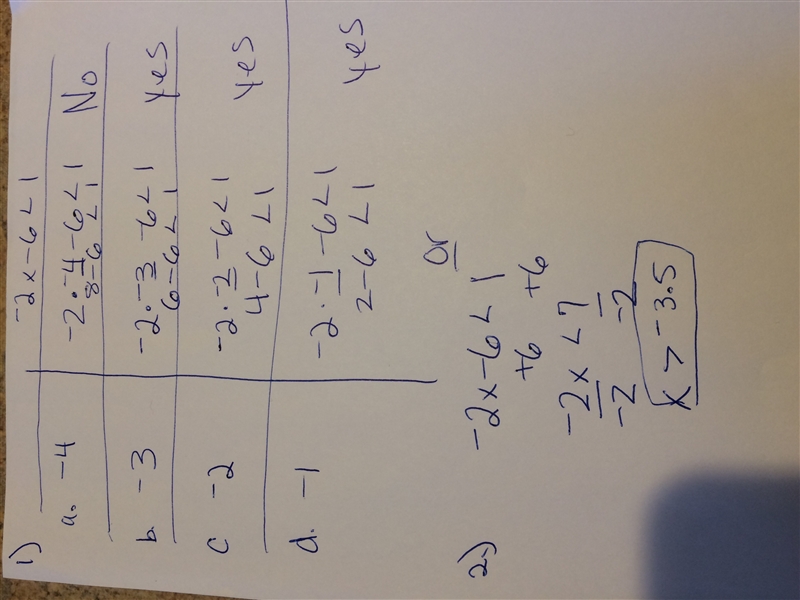 1) -2x-6<1
a. -4 -2·-4-6<1 No
8-6<1
b. -3 -2·-3-6<1 Yes
6-6<1
c -2 -2·-2-6<1 Yes
4-6<1
d. -1 -2·-1-6<1 Yes
2-6<1
Or
2.) -2x-6<1
+6 +6
-2x<7
-2 -2
x > -3.5